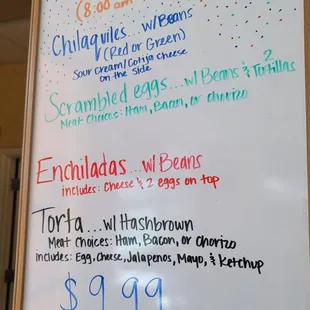 (8:00 am
Chilaquiles... w/Beans
(Red or Green)
Sour Cream/Cotija Cheese
on the side
Scrambled eggs... w/Beans & 2 Tortillas
Meat Choices: Ham, Bacon, or chorizo
Enchiladas... w/Beans
includes: Cheese & 2 eggs on top
Torta... w/Hashbrown
Meat Choices: Ham, Bacon, or Chorizo
Includes: Egg, Cheese, Jalapenos, Mayo, & Ketchup
$9.99